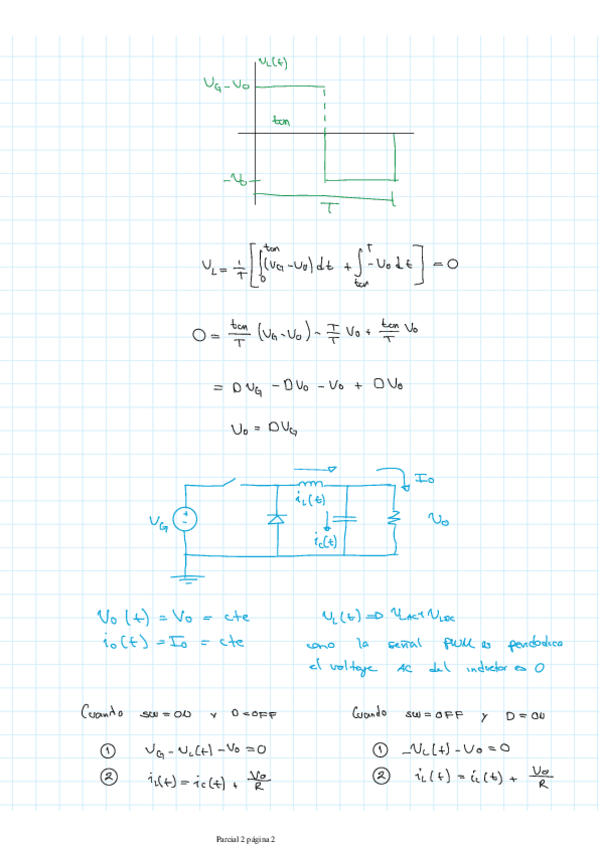 V_L(t)
V_G - V_o
ton
-V_o
T
V_L = 1/T [ ∫_0^ton (V_G - V_o) dt + ∫_ton^T -V_o dt ] = 0
0 = ton/T (V_G - V_o) - T/T V_o + ton/T V_o
= DV_G - DV_o - V_o + DV_o
V_o = DV_G
I_o
i_L(t)
V_G
V_o
i_c(t)
V_o(t) = V_o = cte
i_o(t) = I_o = cte
V_L(t) =>
como la señal PWM es periodica
el voltaje AC del inductor es 0
Cuando SW=ON y D=OFF
① V_G - V_L(t) - V_o = 0
② i_L(t) = i_c(t) + V_o/R
Cuando SW=OFF y D=ON
① -V_L(t) - V_o = 0
② i_L(t) = i_c(t) + V_o/R
Parcial 2 página 2